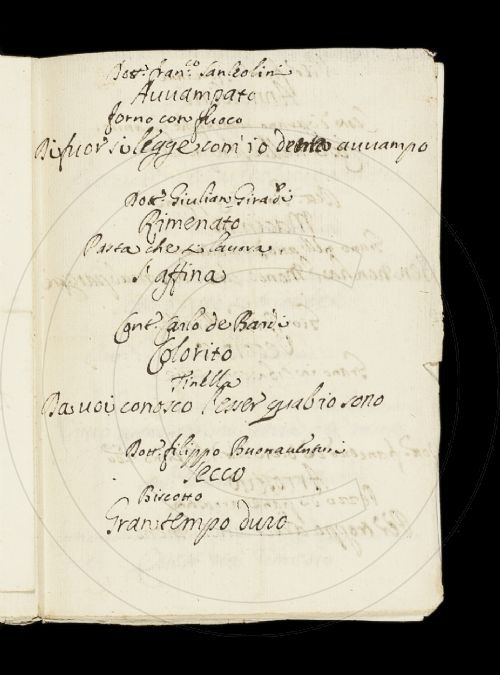 Dott.r fran.co Sanleolini
Avvampato
forno con fuoco
Di fuor si legge com' io dentro avvampo
Dott.r Giulian Girardi
Rimenato
Pasta che si lavora
S'affina
Cont.e Carlo de Bardi
Colorito
Tinella
Da voi conosco l'esser qual io sono
Dott.r filippo Buonaventuri
Secco
Biscotto
Gran tempo duro